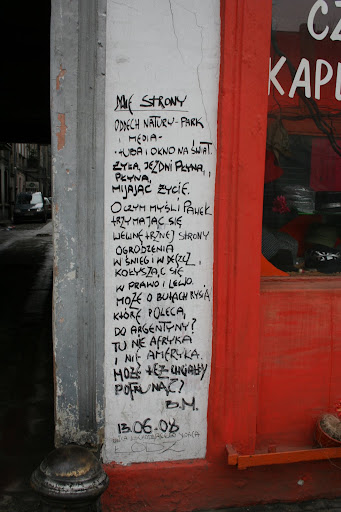 CZ
KAPE
STRONY
ODDECH NATURY - PARK
I MEDIA -
TUBA I OKNO NA ŚWIAT.
JEZDNI PŁYNĄ,
PŁYNĄ,
MIJAJĄC ŻYCIE.
O CZYM MYŚLI PAWEŁ
TRZYMAJĄC SIĘ
WEWNĘTRZNEJ STRONY
OGRODZENIA
W ŚNIEG I W DESZCZ,
KOŁYSZĄC SIĘ
W PRAWO I LEWO.
MOŻE O BUTACH RYSIA
KTÓRE POLECĄ
DO ARGENTYNY?
TU NIE AFRYKA
I NIE AMERYKA.
MOŻE TEŻ CHCIAŁBY
POFRUNĄĆ?
B.M.
13.06.08